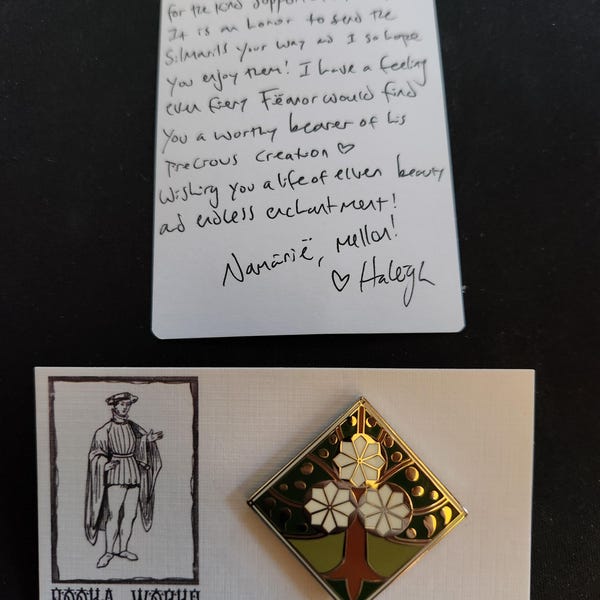 for the kind support
It is an honor to send the
Silmarils your way and I so hope
you enjoy them! I have a feeling
even fiery Fëanor would find
you a worthy bearer of his
precious creation ♡
Wishing you a life of elven beauty
and endless enchantment!
Namárië, mellon!
♡ Haleigh
POOKA WORKS